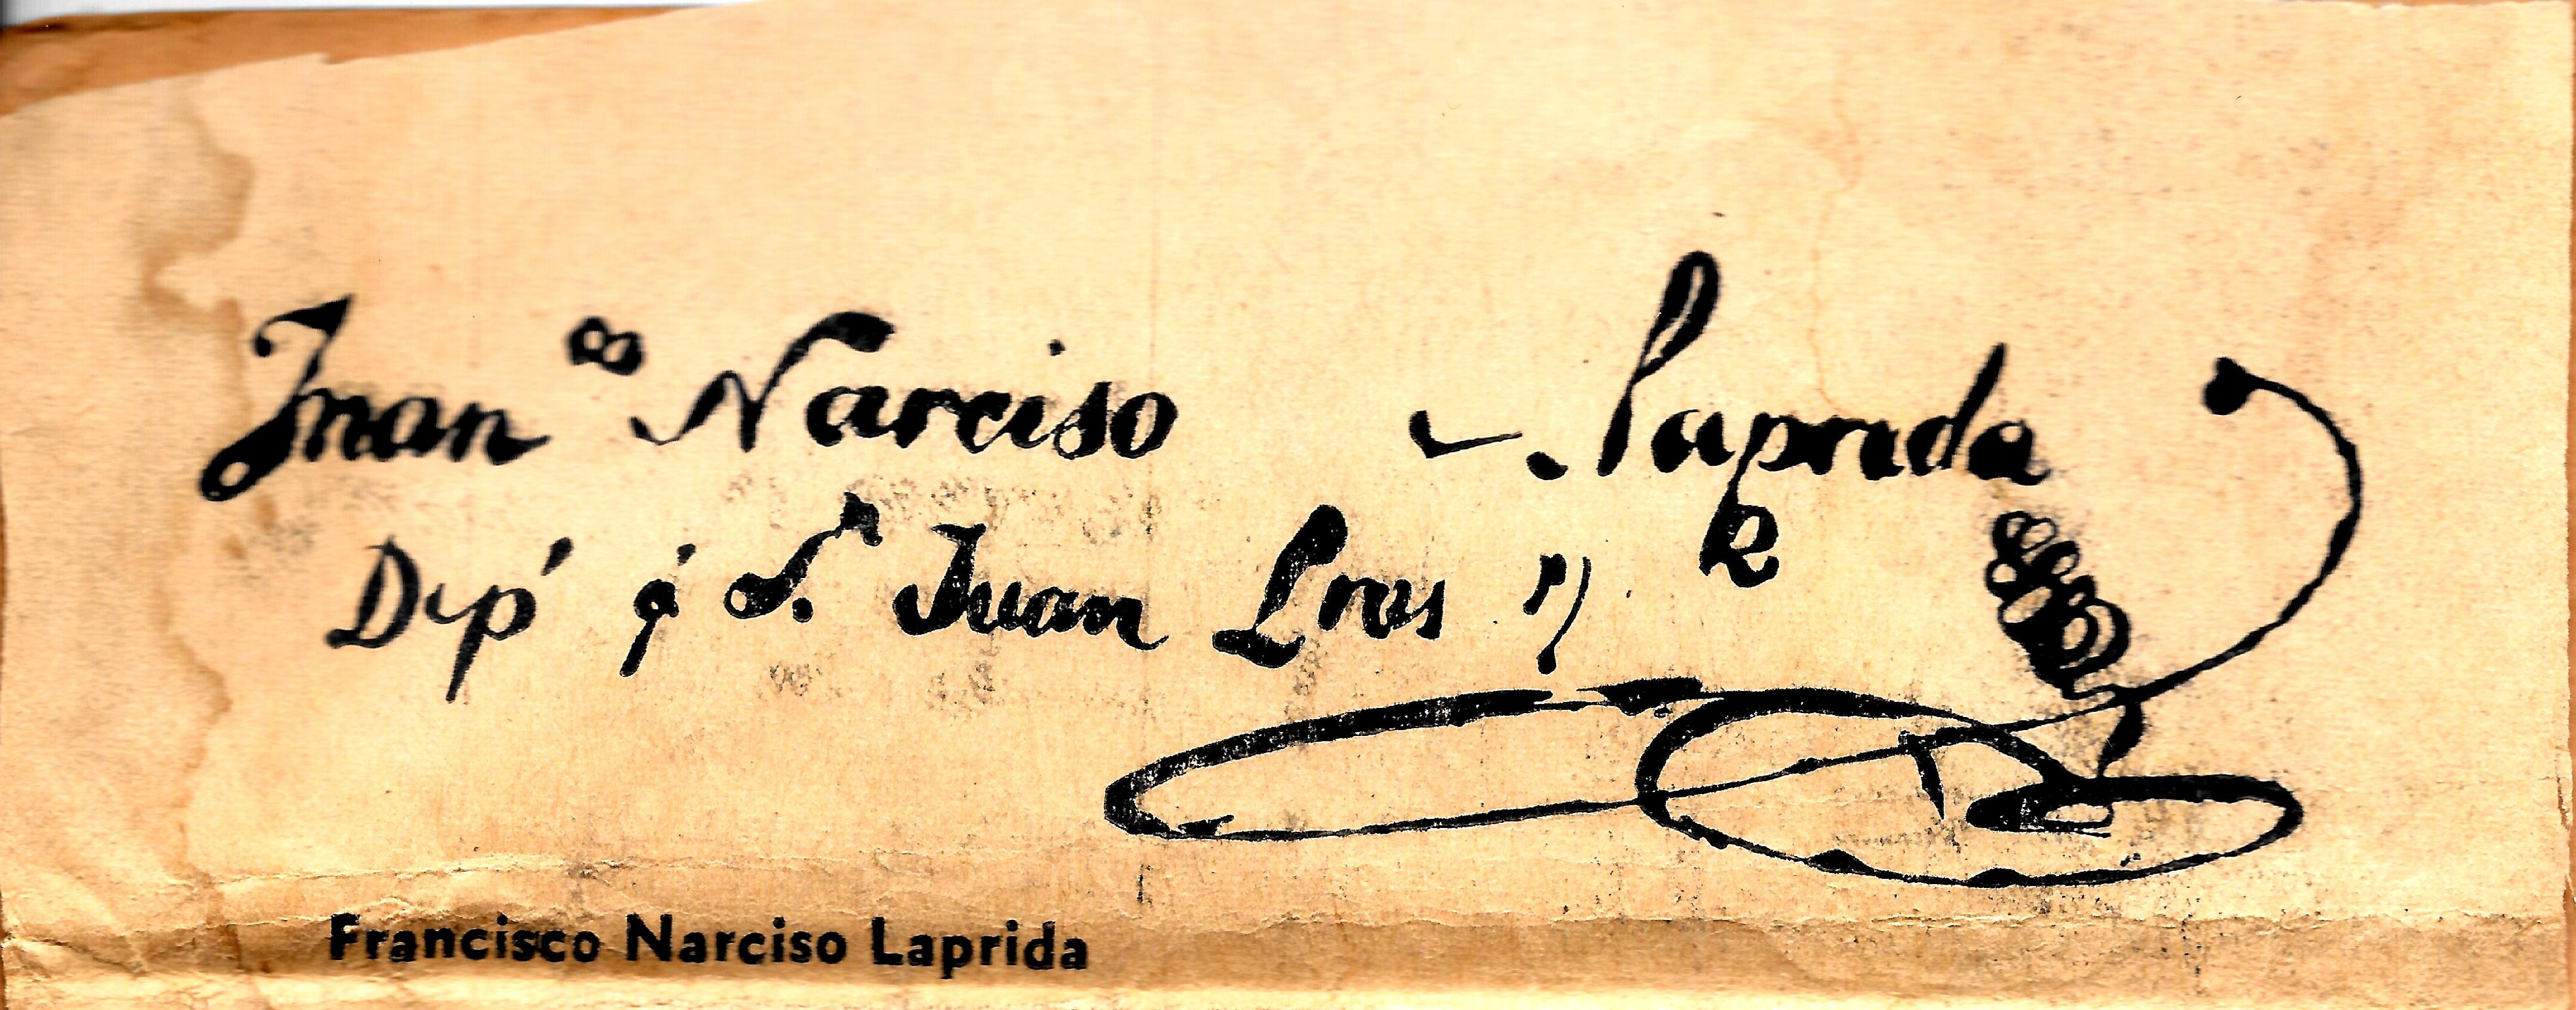 Fran.co Narciso de Laprida
Dip.o p.r S.n Juan Pres.te
Francisco Narciso Laprida